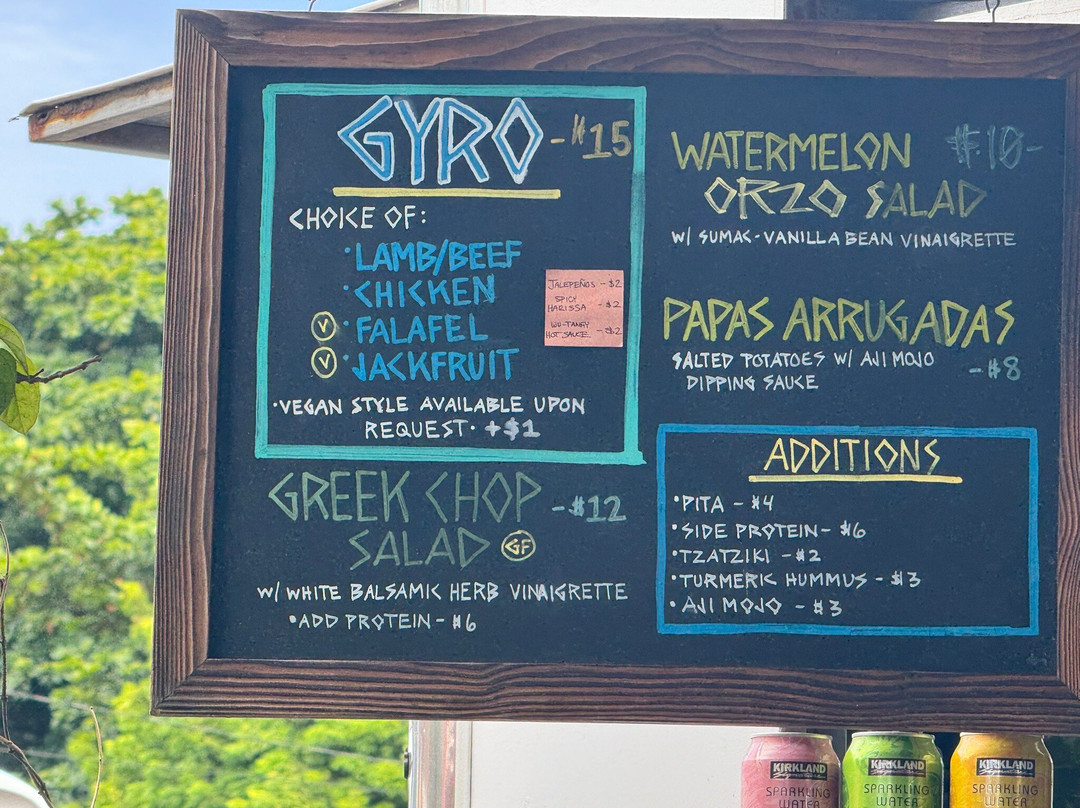 GYRO -$15
CHOICE OF:
·LAMB/BEEF
·CHICKEN
V ·FALAFEL
V ·JACKFRUIT
JALEPEÑOS -$2
SPICY
HARISSA -$2
WU-TANGY
HOT SAUCE -$2
·VEGAN STYLE AVAILABLE UPON
REQUEST· +$1
GREEK CHOP -$12
SALAD GF
W/ WHITE BALSAMIC HERB VINAIGRETTE
·ADD PROTEIN- $6
WATERMELON $10-
ORZO SALAD
W/ SUMAC-VANILLA BEAN VINAIGRETTE
PAPAS ARRUGADAS
SALTED POTATOES W/ AJI MOJO
DIPPING SAUCE -$8
ADDITIONS
·PITA - $4
·SIDE PROTEIN- $6
·TZATZIKI -$2
·TURMERIC HUMMUS - $3
·AJI MOJO - $3
KIRKLAND
Signature
SPARKLING
WATER
KIRKLAND
Signature
SPARKLING
WATER
KIRKLAND
Signature
SPARKLING
WATER